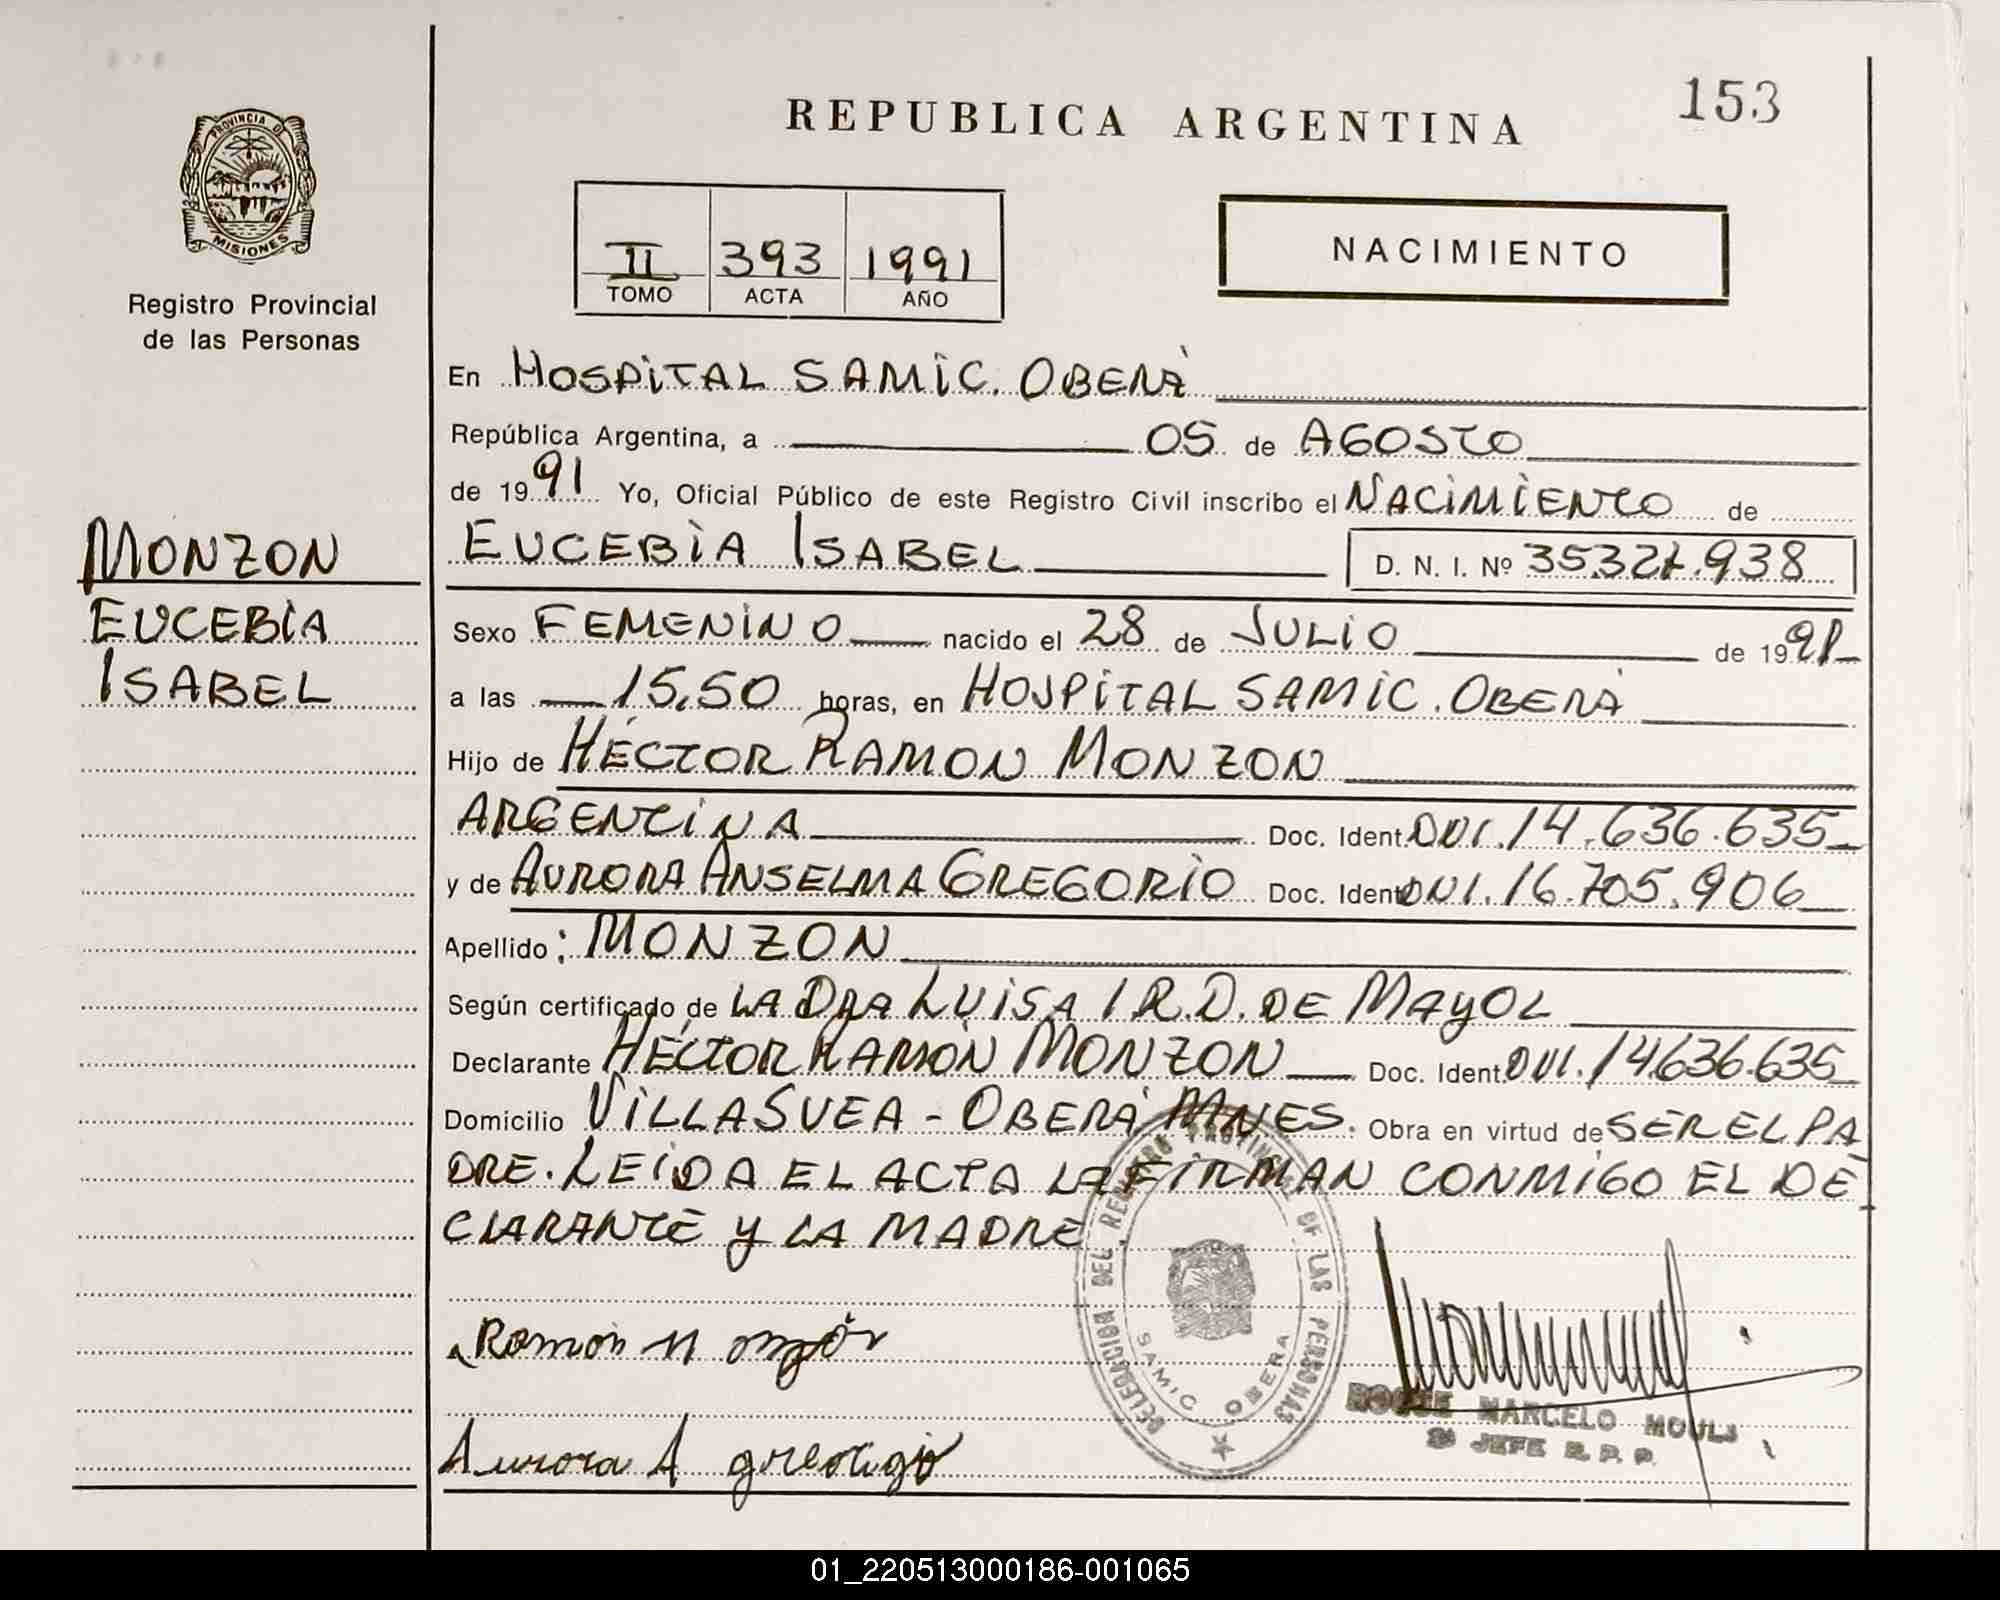 153
REPUBLICA ARGENTINA
PROVINCIA D
MISIONES
Registro Provincial
de las Personas
II 393 1991
TOMO ACTA AÑO
NACIMIENTO
En HOSPITAL SAMIC. OBERÁ
República Argentina, a 05 de AGOSTO
de 1991 Yo, Oficial Público de este Registro Civil inscribo el NACIMIENTO de
MONZON
EUCEBIA
ISABEL
EUCEBIA ISABEL D. N. I. Nº 35.327.938
Sexo FEMENINO nacido el 28 de JULIO de 1991
a las 15,50 horas, en HOSPITAL SAMIC. OBERÁ
Hijo de HÉCTOR RAMON MONZON
ARGENTINA Doc. Ident. DNI. 14.636.635
y de AURORA ANSELMA GREGORIO Doc. Ident. DNI. 16.705.906
Apellido: MONZON
Según certificado de LA DRA LUISA I R.D. DE MAYOL
Declarante HÉCTOR RAMÓN MONZON Doc. Ident. DNI. 14636.635
Domicilio VILLA SVEA - OBERÁ MNES. Obra en virtud de SER EL PA
DRE. LEIDA EL ACTA LA FIRMAN CONMIGO EL DE
CLARANTE Y LA MADRE.
Ramón Monzón
Aurora A gregorio
DELEGACION DEL REGISTRO PROVINCIAL DE LAS PERSONAS
SAMIC OBERA
ROQUE MARCELO
JEFE R. P. P.
01_220513000186-001065